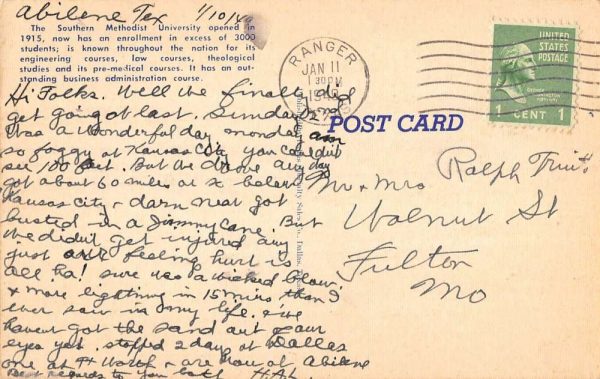 Abilene Tex 1/10/49
The Southern Methodist University opened in
1915, now has an enrollment in excess of 3000
students; is known throughout the nation for its
engineering courses, law courses, theological
studies and its pre-medical courses. It has an out-
standing business administration course.
Hi Folks. Well we finally did
get going at last. Sunday 2nd
was a wonderful day monday
so foggy at Kansas City you couldn't
see 100 feet. But we drove any day
got about 60 miles below
Kansas City & darn near got
busted in a Jimmy Cane. But
we didn't get injured any
just our feeling hurt is
all ha! sure was a wicked blow
& more lightning in 15 mins than I
ever saw in my life. & we
havent got the sand out of our
eyes yet. stopped 2 days at Dallas
one at Ft Worth & are now at Abilene
Best regards to you both H.A.L.
RANGER
JAN 11
1 30 PM
UNITED
STATES
POSTAGE
1 CENT 1
POST CARD
Mr & Mrs Ralph
Walnut St
Fulton
Mo
Sales Co., Dallas